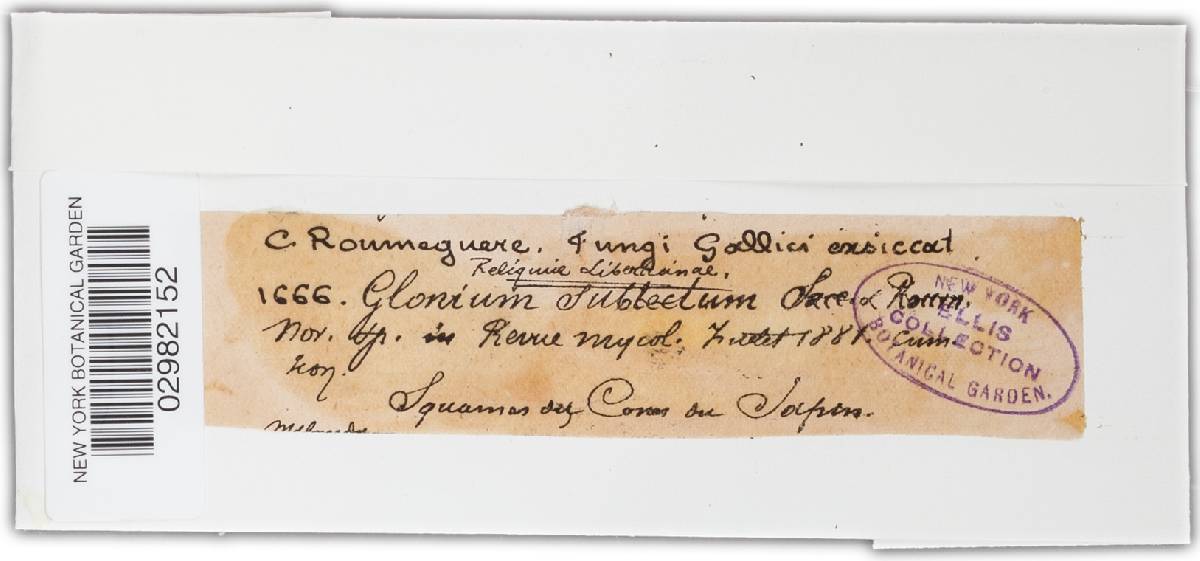 NEW YORK BOTANICAL GARDEN
02982152
C. Roumeguere. Fungi Gallici exsiccat.
Reliquiæ Libertianae.
1666. Glonium Subtectum Sacc & Roum.
Nov. sp. in Revue mycol. Juillet 1881. cum
Icon.
Squames des Cones du Sapin.
NEW YORK
ELLIS
COLLECTION
BOTANICAL GARDEN.